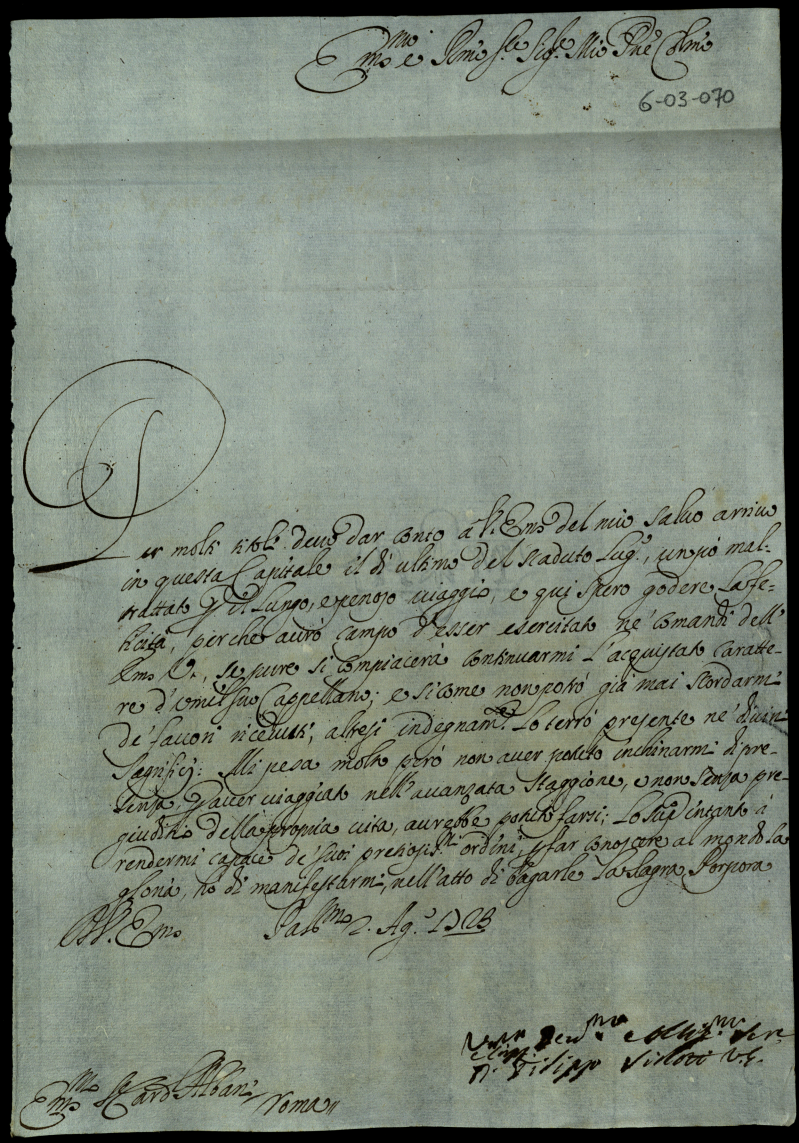 Em̃o e Rm̃o Sr̃e Sigr̃e Mio Pñe Colm̃o
6-03-070
Per molti titoli devo dar conto à V. Em̃a del mio salvo arrivo
in questa Capitale il dì ultimo del scaduto Lug.º, un pò mal-
trattato p il lungo, e penoso viaggio, e qui spero godere la fe-
licità, perche avrò campo d'esser esercitato ne' comandi dell'
Em̃a V.ª, se pure si compiacerà continuarmi l'acquistato caratte-
re d'umil suo Cappellano; e sicome non potrò già mai scordarmi
de' favori ricevuti, altresi indegnam.te Lo terrò presente ne' divini
Sagrificij: Mi pesa molto però non aver potuto inchinarmi di pre-
senza, p aver viaggiato nell'avanzata staggione, e non senza pre-
giuditio della propria vita, avrebbe potuto farsi; Lo intanto à
rendermi capace de' suoi pretiosis.mi ordini, p far conoscere al mondo la
gloria, hò di manifestarmi, nell'atto di bagarle La Sagra Porpora
D V. Em̃a Pal.mo 2. Ag.º 1723
Dev.mo e Obb.mo Ser.e
Filippo
Em.mo S.r Card. Albani Roma